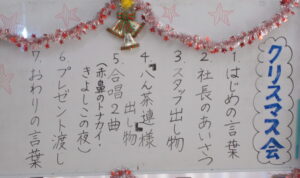 クリスマス会
1 はじめの言葉
2 社長のあいさつ
3. スタッフ出し物
4.『八ん茶連』様
出し物
5 合唱2曲
(赤鼻のトナカイ・
きよしこの夜)
6 プレゼント渡し
7. おわりの言葉